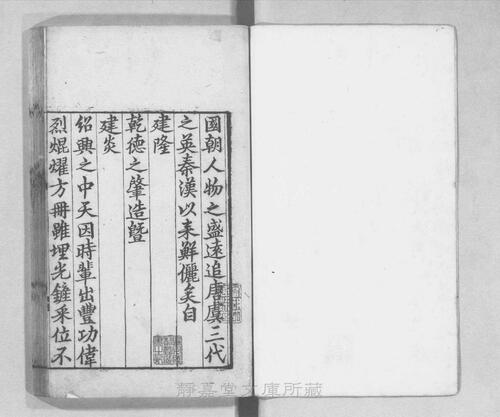 國朝人物之盛遠追唐虞三代
之英秦漢以来鮮儷矣自
建隆
乾德之肇造曁
建炎
紹興之中天因時輩出豐功偉
烈焜耀方冊雖埋光鏟采位不
靜嘉堂文庫所藏